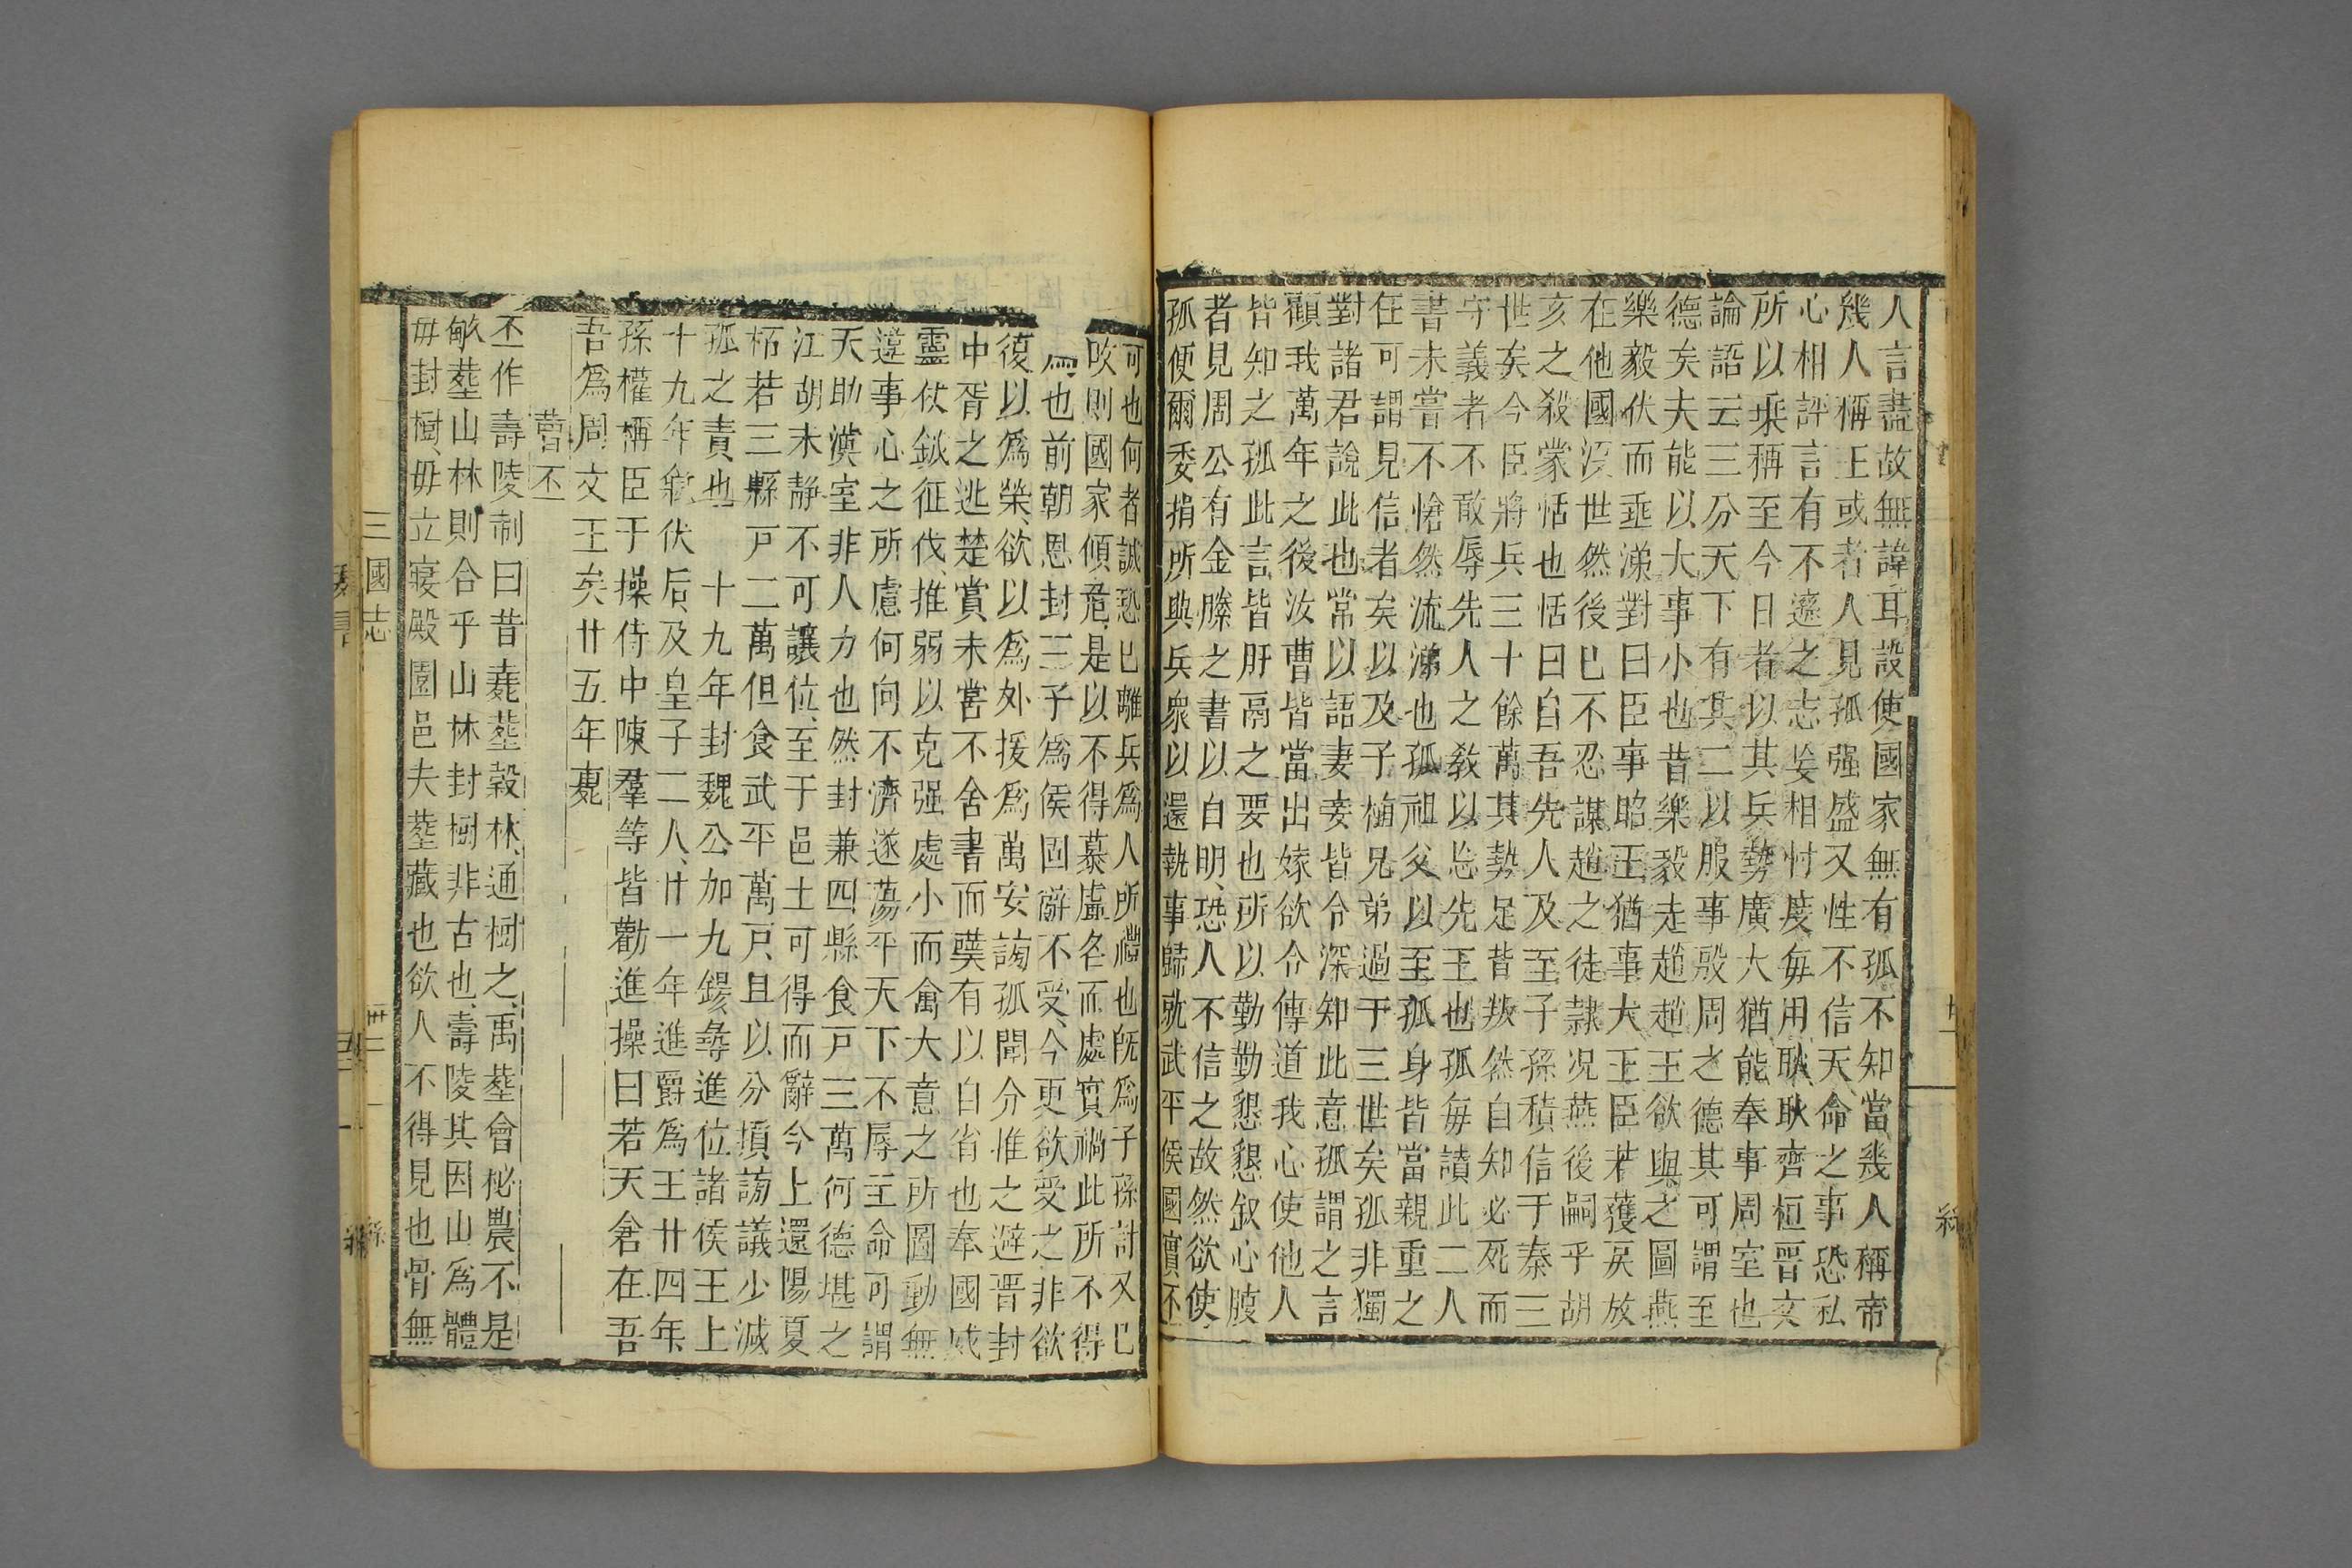 人言盡故無諱耳設使國家無有孤不知當幾人稱帝
幾人稱王或者人見孤强盛又性不信天命之事恐私
心相評言有不遜之志妄相忖度每用耿耿齊桓晉文
所以乘稱至今日者以其兵勢廣大猶能奉事周室也
論語云三分天下有其二以服事殷周之德其可謂至
德矣夫能以大事小也昔樂毅走趙趙王欲與之圖燕
樂毅伏而垂涕對曰臣事昭王猶事大王臣若獲戾放
在他國沒世然後已不忍謀趙之徒隸况燕後嗣乎胡
亥之殺蒙恬也恬曰自吾先人及至子孫積信于秦三
世矣今臣將兵三十餘萬其勢足昔叛然自知必死而
守義者不敢辱先人之敎以忘先王也孤每讀此二人
書未嘗不愴然流涕也孤祖父以至孤身皆當親重之
任可謂見信者矣以及子植兄弟過于三世矣孤非獨
對諸君說此也常以語妻妾皆令深知此意孤謂之言
顧我萬年之後汝曹皆當出嫁欲令傳道我心使他人
皆知之孤此言皆肝鬲之要也所以勤勤懇懇叙心腹
者見周公有金縢之書以自明恐人不信之故然欲使
孤便爾委捐所典兵衆以還執事歸就武平侯國實不
可也何者誠恐已離兵爲人所禍也旣爲子孫計又已
敗則國家傾危是以不得慕虛名而處實禍此所不得
爲也前朝恩封三子爲侯固辭不受今更欲受之非欲
復以爲榮欲以爲外援爲萬安謀孤聞介推之避晉封
申胥之逃楚賞未嘗不舍書而歎有以自省也奉國威
靈仗鉞征伐推弱以克强處小而禽大意之所圖動無
違事心之所慮何向不濟遂蕩平天下不辱主命可謂
天助漢室非人力也然封兼四縣食戸三萬何德堪之
江胡未靜不可讓位至于邑土可得而辭今上還陽夏
柘若三縣戸二萬但食武平萬戸且以分損謗議少減
孤之責也　十九年封魏公加九錫尋進位諸侯王上
十九年弒伏后及皇子二人廿一年進爵爲王廿四年
孫權稱臣于操侍中陳羣等皆勸進操曰若天命在吾
吾爲周文王矣廿五年薨
曹丕
丕作壽陵制曰昔堯葬穀林通樹之禹葬會稽農不易
畝葬山林則合乎山林封樹非古也壽陵其因山爲體
毋封樹毋立寢殿園邑夫葬藏也欲人不得見也骨無
三國志